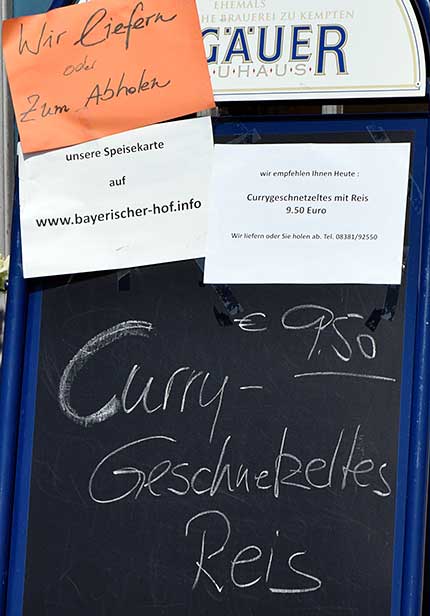 EHEMALS
HE BRAUEREI ZU KEMPTEN
GÄUER
UHAUS
Wir liefern
oder
Zum Abholen
unsere Speisekarte
auf
www.bayerischer-hof.info
wir empfehlen Ihnen Heute :
Currygeschnetzeltes mit Reis
9.50 Euro
Wir liefern oder Sie holen ab. Tel. 08381/92550
€ 9.50
Curry-
Geschnetzeltes
Reis